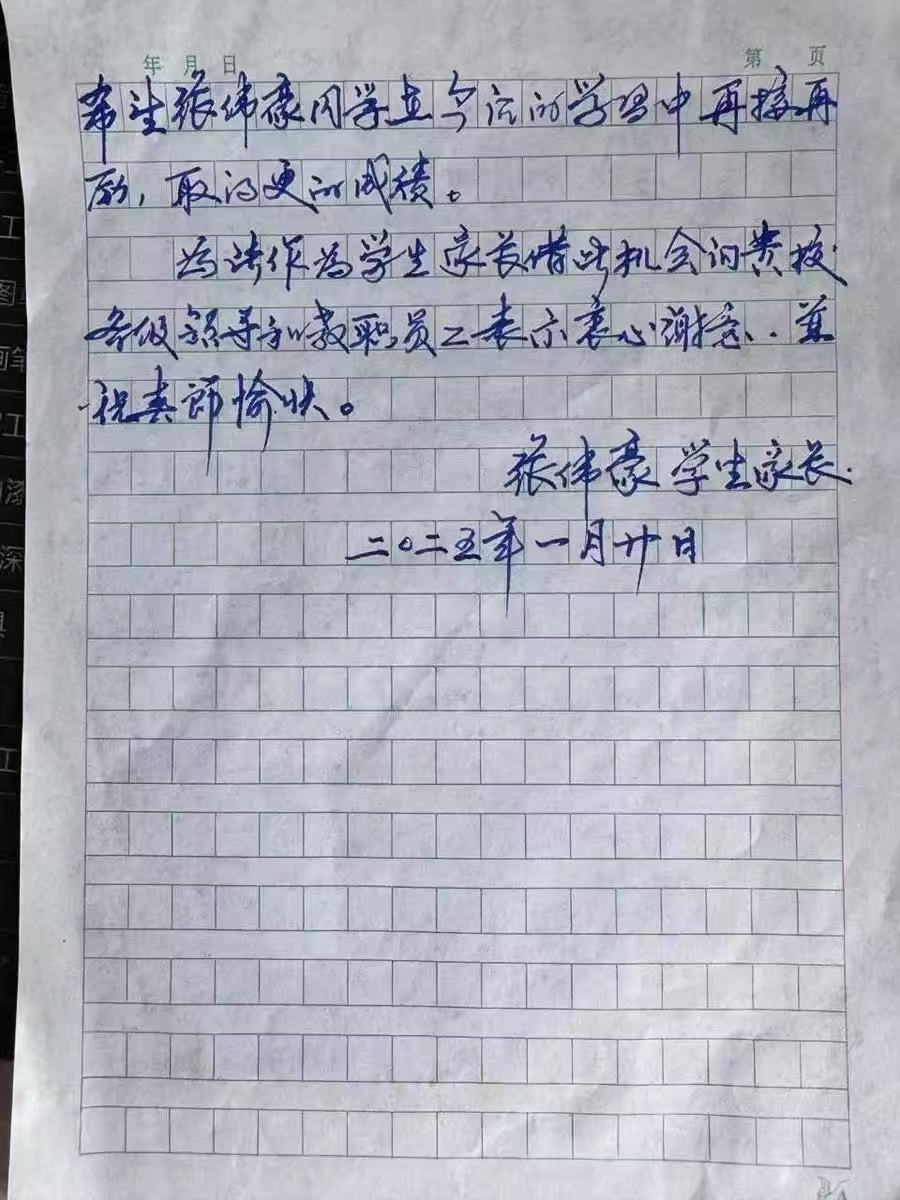 年 月 日
第 页
希望张伟豪同学在今后的学习中再接再
励，取得更的成绩。
作为学生家长借此机会向贵校
各级领导和教职员工表示衷心谢意..并
祝春节愉快。
张伟豪学生家长.
二〇二五年一月廿日
工
图
画笔
工
深
具
工